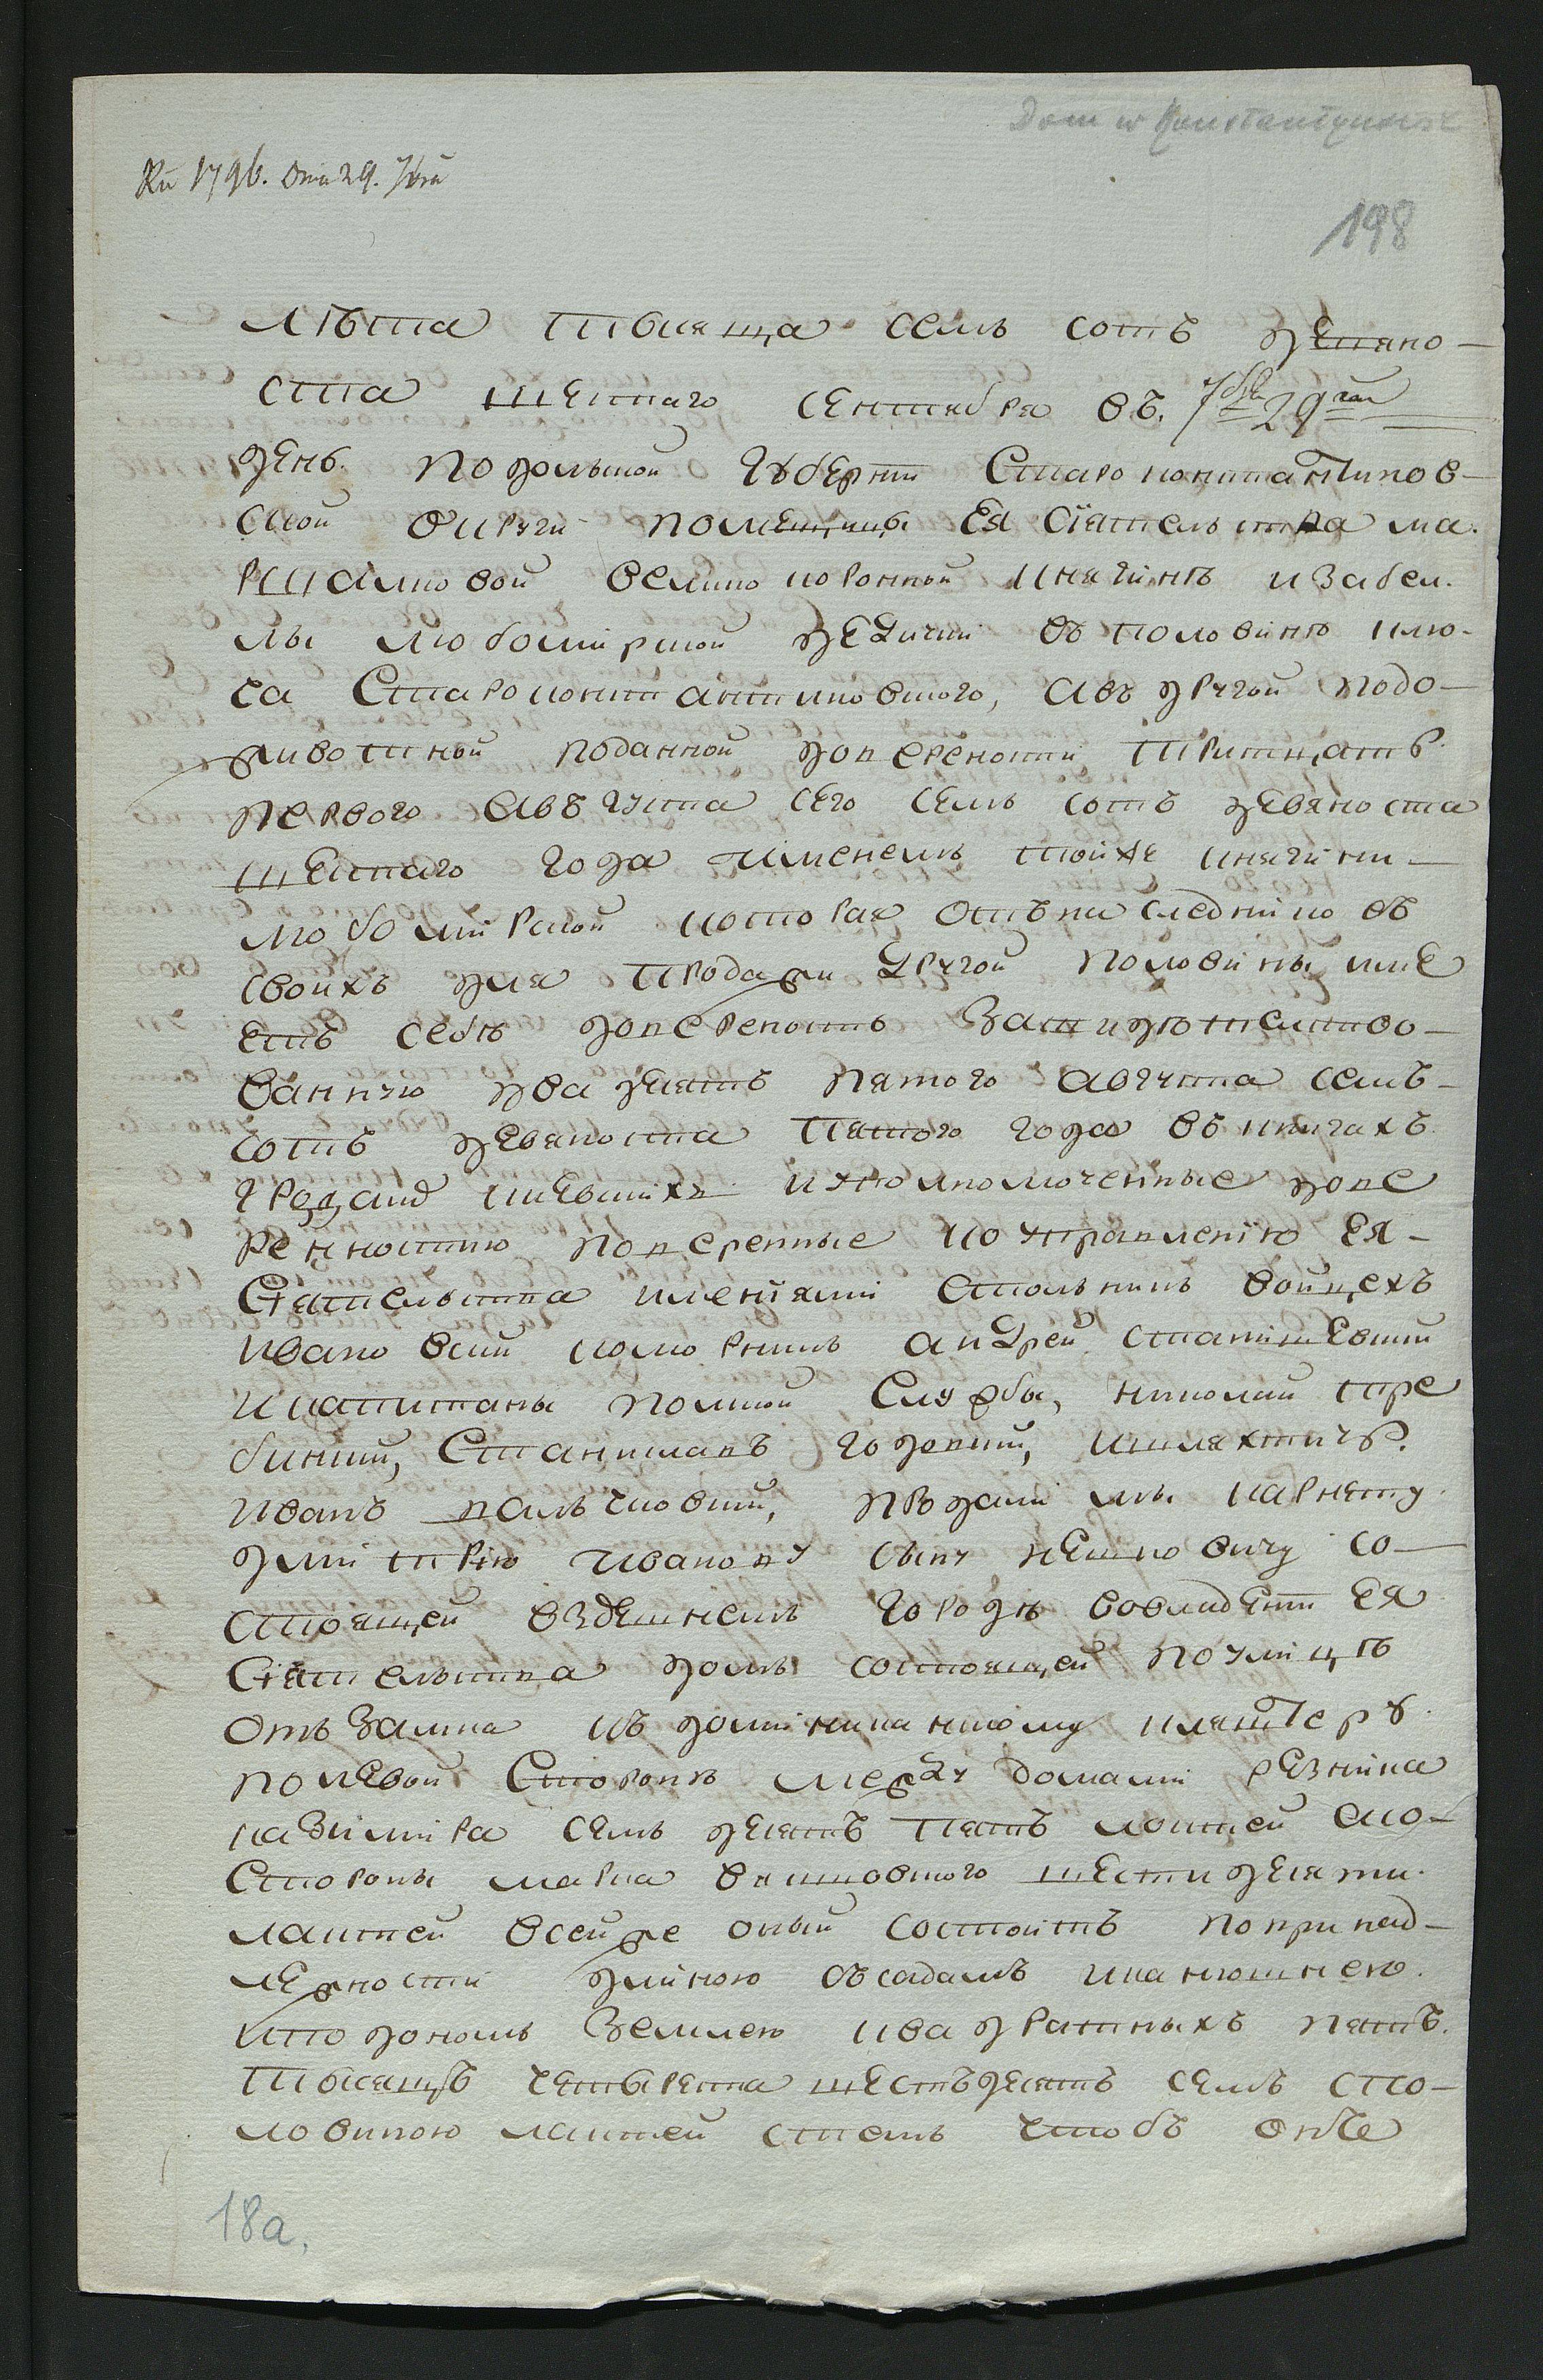 Dom w Konstantynowie
Ru 1796. Dnia 29. 7bra
198
Лѣта тысяща семь сотъ девяно-
ста шестаго сентября въ 7бря 29 гои
день. Подольской Губернии Староконстантинов-
скои округи помещицы Ея Сіятельства ма-
ршалковой великокоронной княгинѣ изабел-
лы любомирской дедички въ половинѣ клю-
ча Староконстантиновского, авъ другой подо-
животной поданной доверености тритцать
первого августа сего семь сотъ девяноста
шестаго года именемъ тойже княгини
любомирской которая отънаследниковъ
своихъ для продажи другой половины име
етъ себѣ довереность засвидѣтелство-
ванную двадцать пятого августа семъ-
сотъ девяноста пятого года въ книгахъ
гродзкихъ киевскихъ иуполномоченные дове
ренностию поверенные поуправлению Ея
Сіятельства имениями столникъ войцехъ
ивановский коморникъ андрей статкевский
икапитаны полской службы, николай тре
бинский, Станиславъ годовский, ишляхтичъ
иванъ пальчковский, продали мы карнету
дмитрию иванову сыну нешковичу со-
стоящей въздешнемъ городѣ вовладении ея
Сіятельства домъ состоящей поулицѣ
отъ замка къ доминиканскому кляштеру
полевой Сторонѣ между домами резника
казимира семь десятъ пять локтей аго
Стороны марка витковского шестидесяти
лактей всейже оный состоитъ попринад-
лежности длиною съсадамъ иканюшнею
итодономъ землею квадратныхъ пять
тысящъ четыреста шестьдесятъ семъ спо-
ловиною лактей стемъ чтобъ онъ
18а.